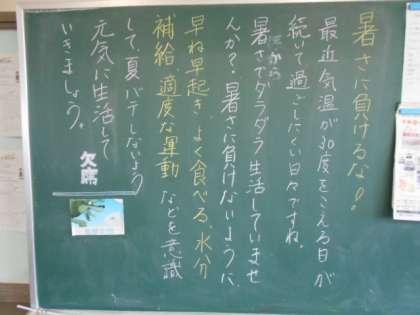 暑さに負けるな!
最近気温が30度をこえる日が
続いて過ごしにくい日々ですね。
暑さでダラダラ生活していませ
んか?暑さに負けないように、
早ね早起き、よく食べる、水分
補給、適度な運動などを意識
して、夏バテしないよう
元気に生活して
いきましょう。
欠席